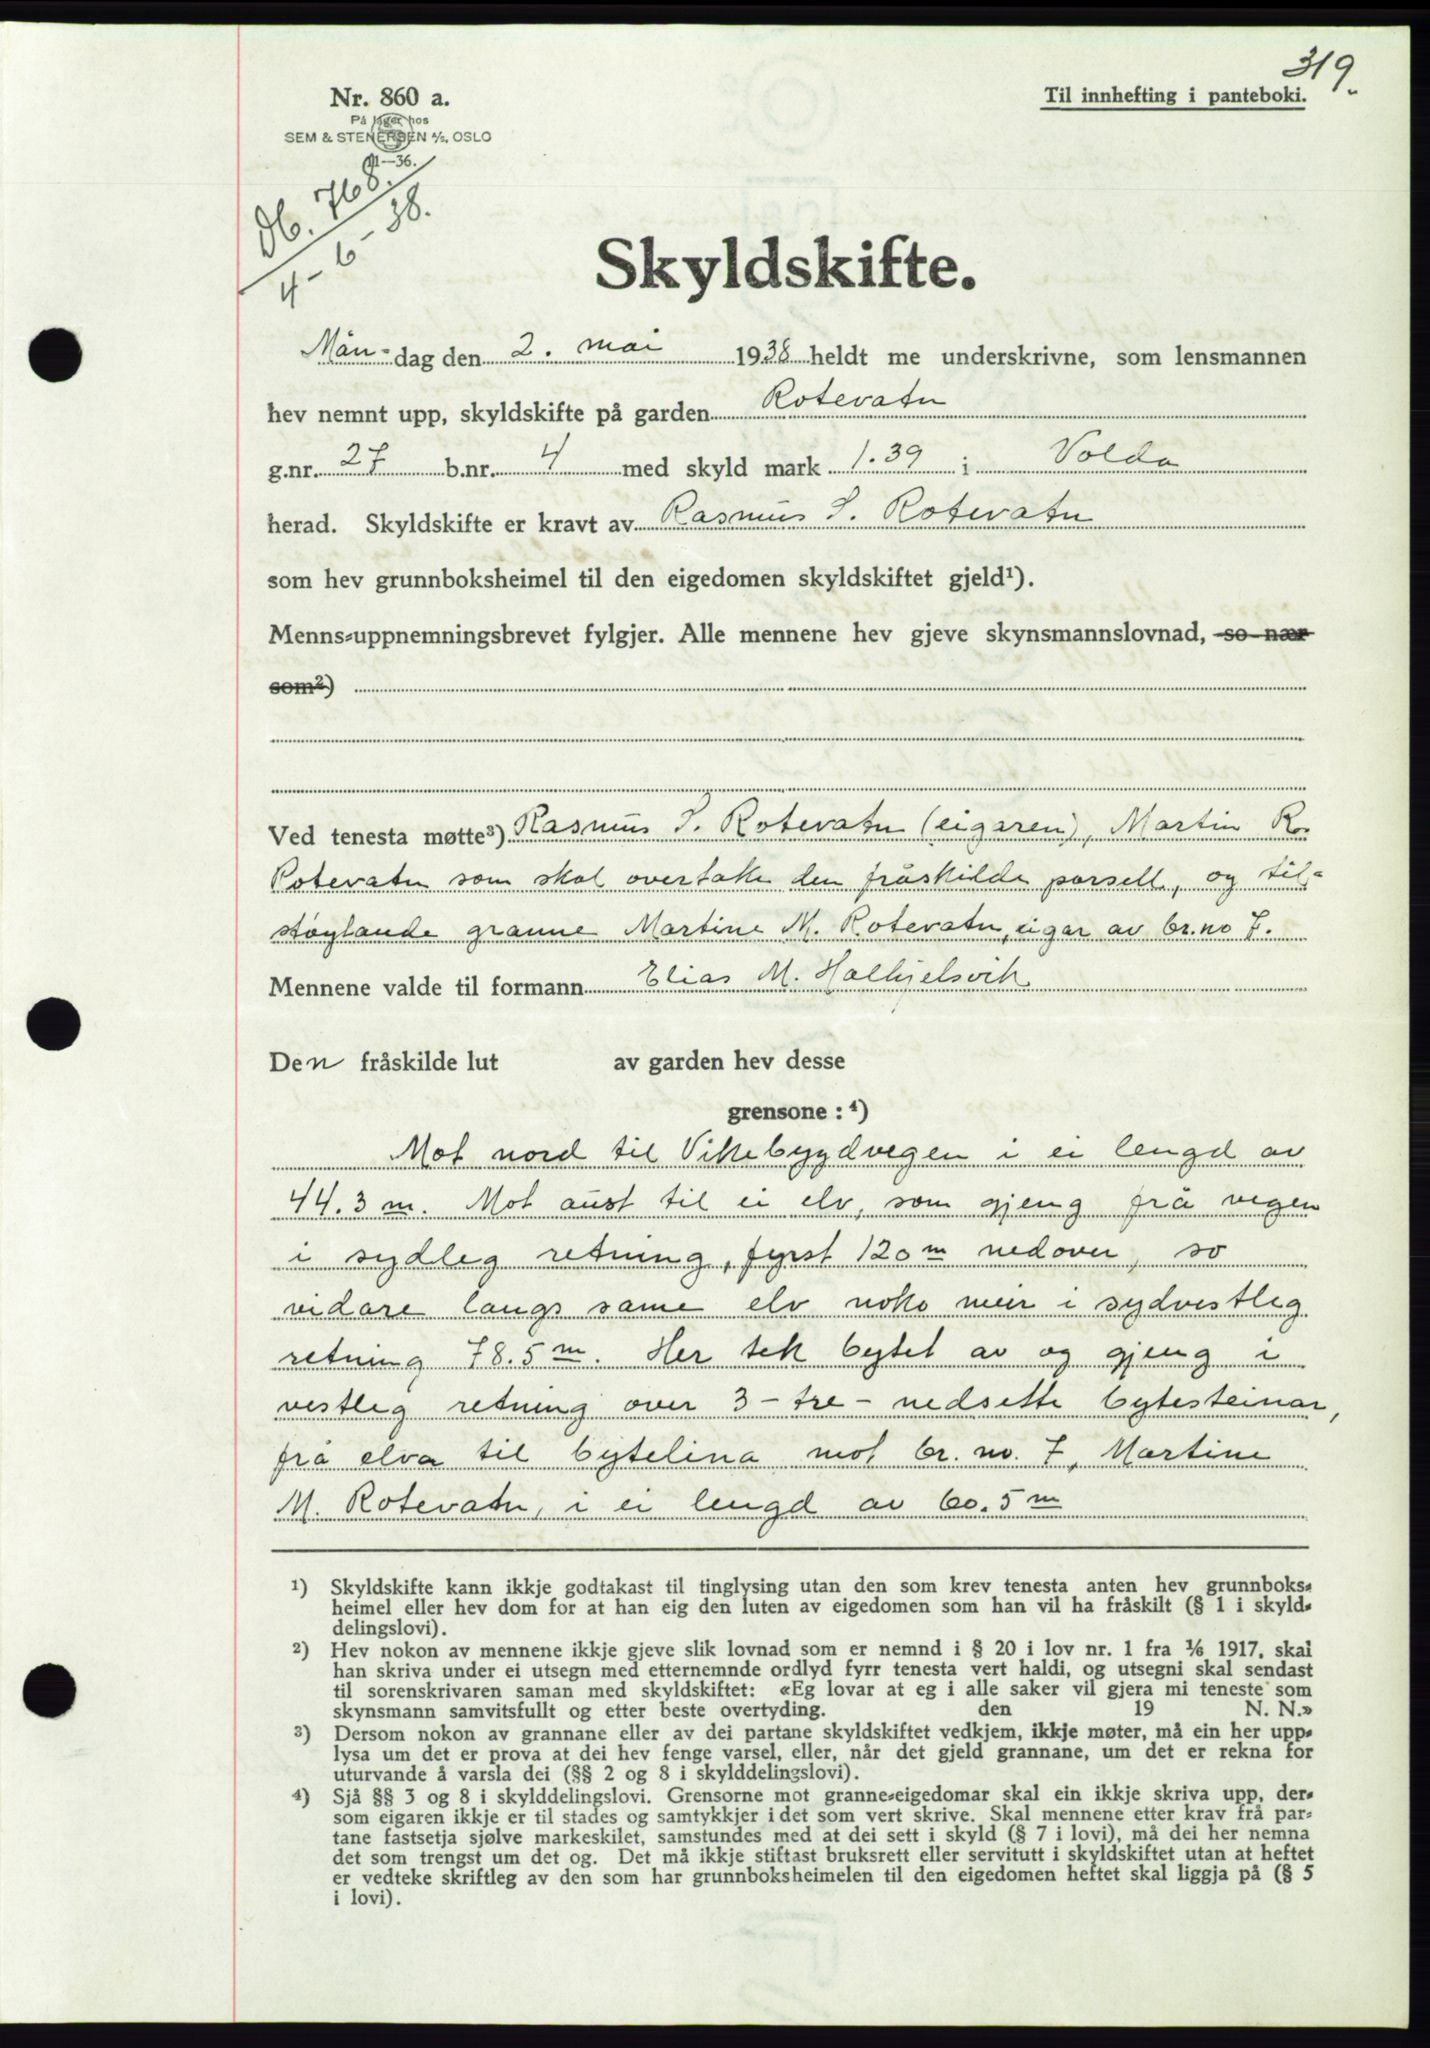 319.
Nr. 860 a.
Til innhefting i panteboki.
På lager hos
SEM & STENERSEN A/S, OSLO
11—36.
Db. 768.
4-6-38.
Skyldskifte.
Mån-dag den 2. mai 1938 heldt me underskrivne, som lensmannen
hev nemnt upp, skyldskifte på garden Rotevatn
g.nr. 27 b.nr. 4 med skyld mark 1.39 i Volda
herad. Skyldskifte er kravt av Rasmus S. Rotevatn
som hev grunnboksheimel til den eigedomen skyldskiftet gjeld¹).
Menns-uppnemningsbrevet fylgjer. Alle mennene hev gjeve skynsmannslovnad, so nær
som²)
Ved tenesta møtte³) Rasmus S. Rotevatn (eigaren), Martin R.
Rotevatn som skal overtake den fråskilde parsell, og til-
støytande granne Martine M. Rotevatn, eigar av br.no 7.
Mennene valde til formann Elias M. Halkjelsvik
Den fråskilde lut av garden hev desse
grensone : ⁴)
Mot nord til Vikebygdvegen i ei lengd av
44.3 m. Mot aust til ei elv, som gjeng frå vegen
i sydleg retning, fyrst 120 m nedover, so
vidare langs same elv noko meir i sydvestleg
retning 78.5 m. Her tek bytet av og gjeng i
vestleg retning over 3 - tre - nedsette bytesteinar,
frå elva til bytelina mot br. no. 7, Martine
M. Rotevatn, i ei lengd av 60.5 m
¹) Skyldskifte kann ikkje godtakast til tinglysing utan den som krev tenesta anten hev grunnboks-
heimel eller hev dom for at han eig den luten av eigedomen som han vil ha fråskilt (§ 1 i skyld-
delingslovi).
²) Hev nokon av mennene ikkje gjeve slik lovnad som er nemnd i § 20 i lov nr. 1 fra 1/6 1917, skal
han skriva under ei utsegn med etternemnde ordlyd fyrr tenesta vert haldi, og utsegni skal sendast
til sorenskrivaren saman med skyldskiftet: «Eg lovar at eg i alle saker vil gjera mi teneste som
skynsmann samvitsfullt og etter beste overtyding. den 19 N. N.»
³) Dersom nokon av grannane eller av dei partane skyldskiftet vedkjem, ikkje møter, må ein her upp-
lysa um det er prova at dei hev fenge varsel, eller, når det gjeld grannane, um det er rekna for
uturvande å varsla dei (§§ 2 og 8 i skylddelingslovi).
⁴) Sjå §§ 3 og 8 i skylddelingslovi. Grensorne mot granne-eigedomar skal ein ikkje skriva upp, der-
som eigaren ikkje er til stades og samtykkjer i det som vert skrive. Skal mennene etter krav frå par-
tane fastsetja sjølve markeskilet, samstundes med at dei sett i skyld (§ 7 i lovi), må dei her nemna
det som trengst um det og. Det må ikkje stiftast bruksrett eller servitutt i skyldskiftet utan at heftet
er vedteke skriftleg av den som har grunnboksheimelen til den eigedomen heftet skal liggja på (§ 5
i lovi).